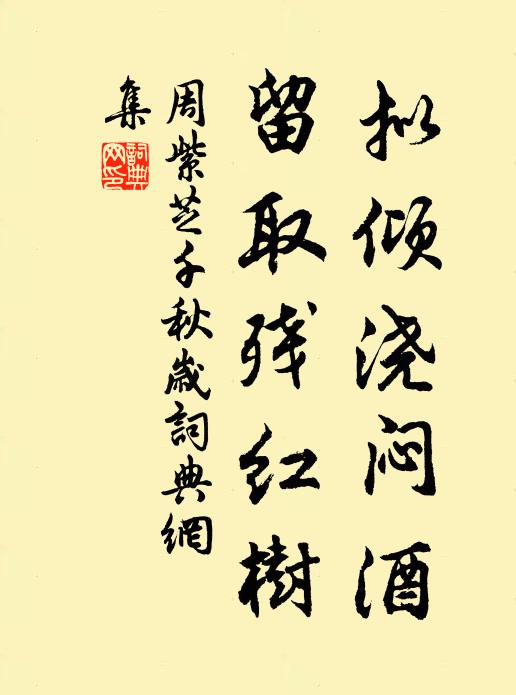 拟倾浇闷酒
留取残红樹
周紫芝千秋歲詞典網
集
詞典網印